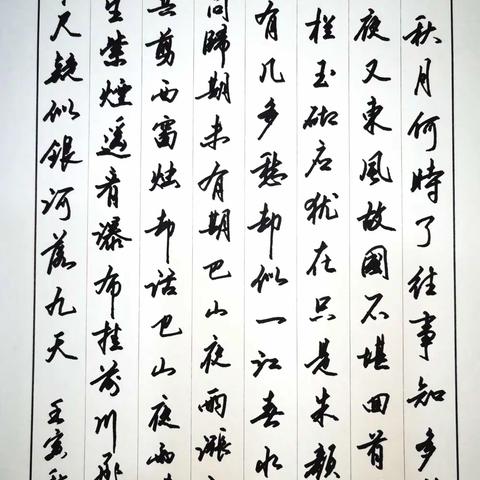 秋月何時了往事知多
夜又東風故國不堪回首
栏玉砌应犹在只是朱颜
有几多愁却似一江春水
问歸期未有期巴山夜雨漲
共剪西窗烛却话巴山夜雨
生紫煙遥看瀑布挂前川飛
尺疑似銀河落九天 壬寅